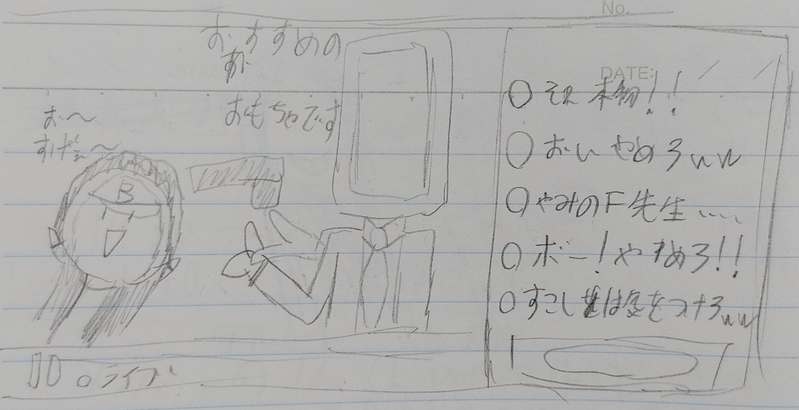 おすすめの
おもちゃです
お〜
すげぇ〜
B
ライブ
No.
DATE:
それ本物!!
おいやめろww
やみのF先生....
ボー!やめろ!!
すこしは気をつけろww